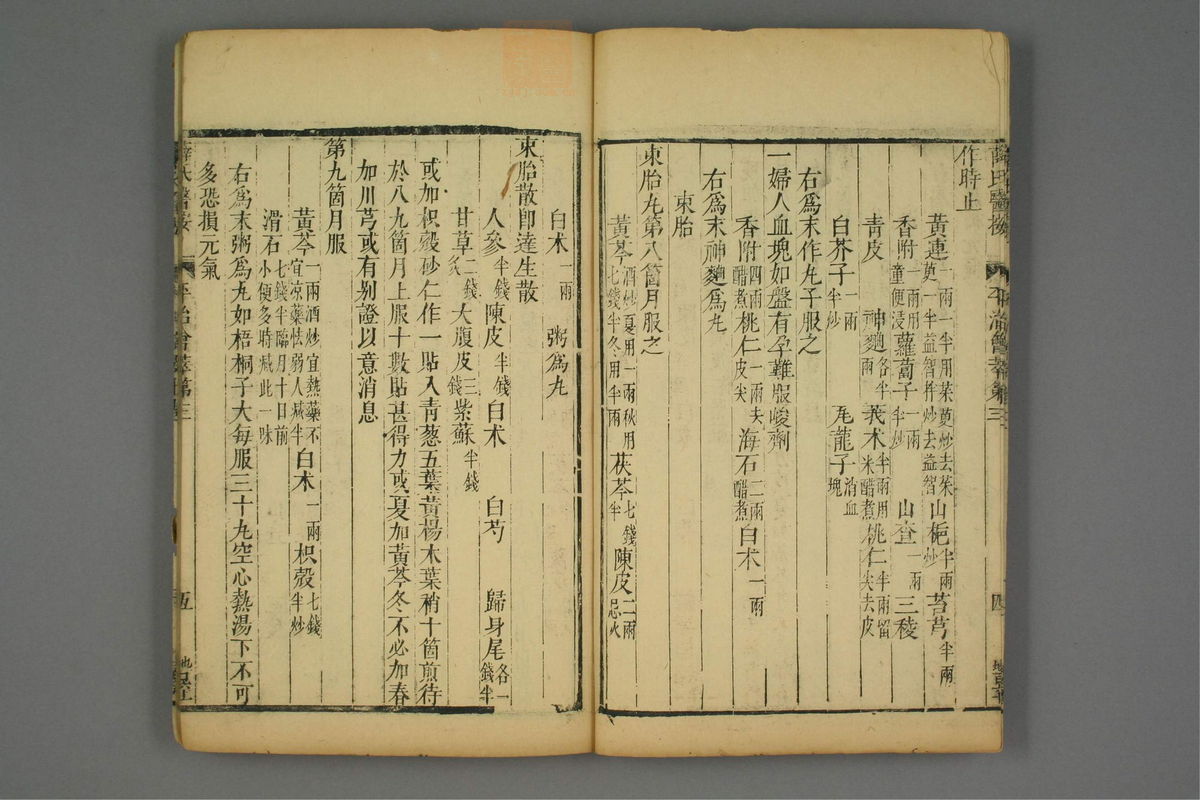 作時止
黃連一兩一半用茱萸炒去茱萸一半益智炒去益智山梔半兩炒芎䓖半兩
香附一兩用童便浸蘿蔔子一兩半炒山查一兩三稜
青皮神麯各半兩莪朮半兩用米醋煮桃仁半兩留尖去皮
白芥子一兩半炒瓦龍子消血塊
右爲末作丸子服之
一婦人血塊如盤有孕難服峻劑
香附四兩醋煮桃仁一兩去皮尖海石二兩醋煮白朮一兩
右爲末神麯爲丸
束胎
束胎丸第八箇月服之
黃芩酒炒夏用一兩秋用七錢半冬用半兩茯苓七錢半陳皮二兩忌火
白朮一兩粥爲丸
束胎散卽達生散
人參半錢陳皮半錢白朮白芍歸身尾各一錢半
甘草二錢炙大腹皮三錢紫蘇半錢
或加枳殼砂仁作一貼入青葱五葉黃楊木葉稍十箇煎待
於八九箇月上服十數貼甚得力或夏加黃芩冬不必加春
加川芎或有别證以意消息
第九箇月服
黃芩一兩酒炒宜熱藥不宜凉藥怯弱人减半白朮一兩枳殼七錢半炒
滑石七錢半臨月十日前小便多時减此一味
右爲末粥爲丸如梧桐子大每服三十丸空心熱湯下不可
多恐損元氣